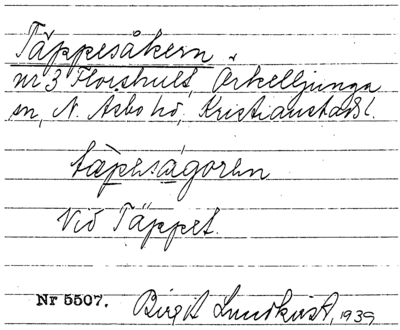 Täppesåkern
nr 3 Florshult, Örkelljunga
sn, N. Åsbo hd, Kristianstads l.
tæpesågoren
Vid Täppet.
Nr 5507. Birgit Lundkvist, 1939